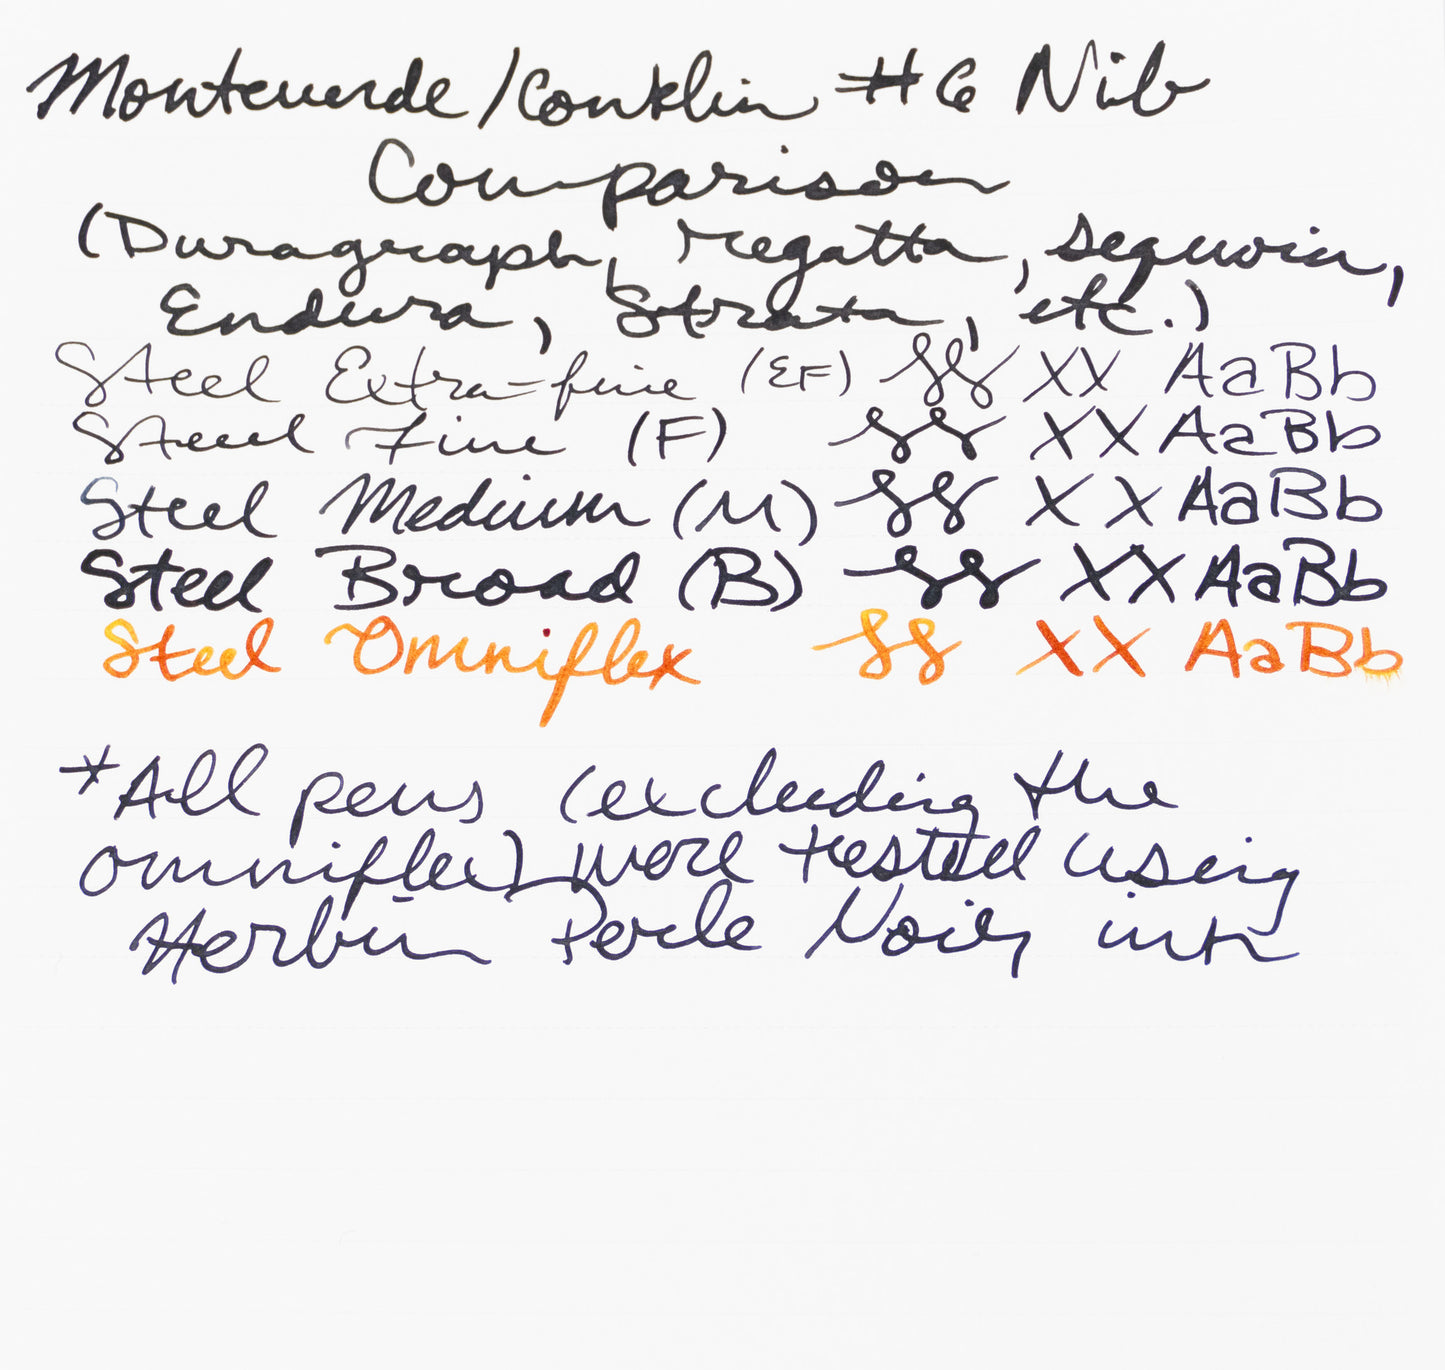 Monteverde/Conklin #6 Nib
Comparison
(Duragraph, regatta, sequoia,
Endura, Strata, etc.)
Steel Extra-fine (EF) SS XX AaBb
Steel Fine (F) SS XX AaBb
Steel Medium (M) SS XX AaBb
Steel Broad (B) SS XX AaBb
Steel Omniflex SS XX AaBb
*All pens (excluding the
omniflex) were tested using
Herbin Perle Noir, ink